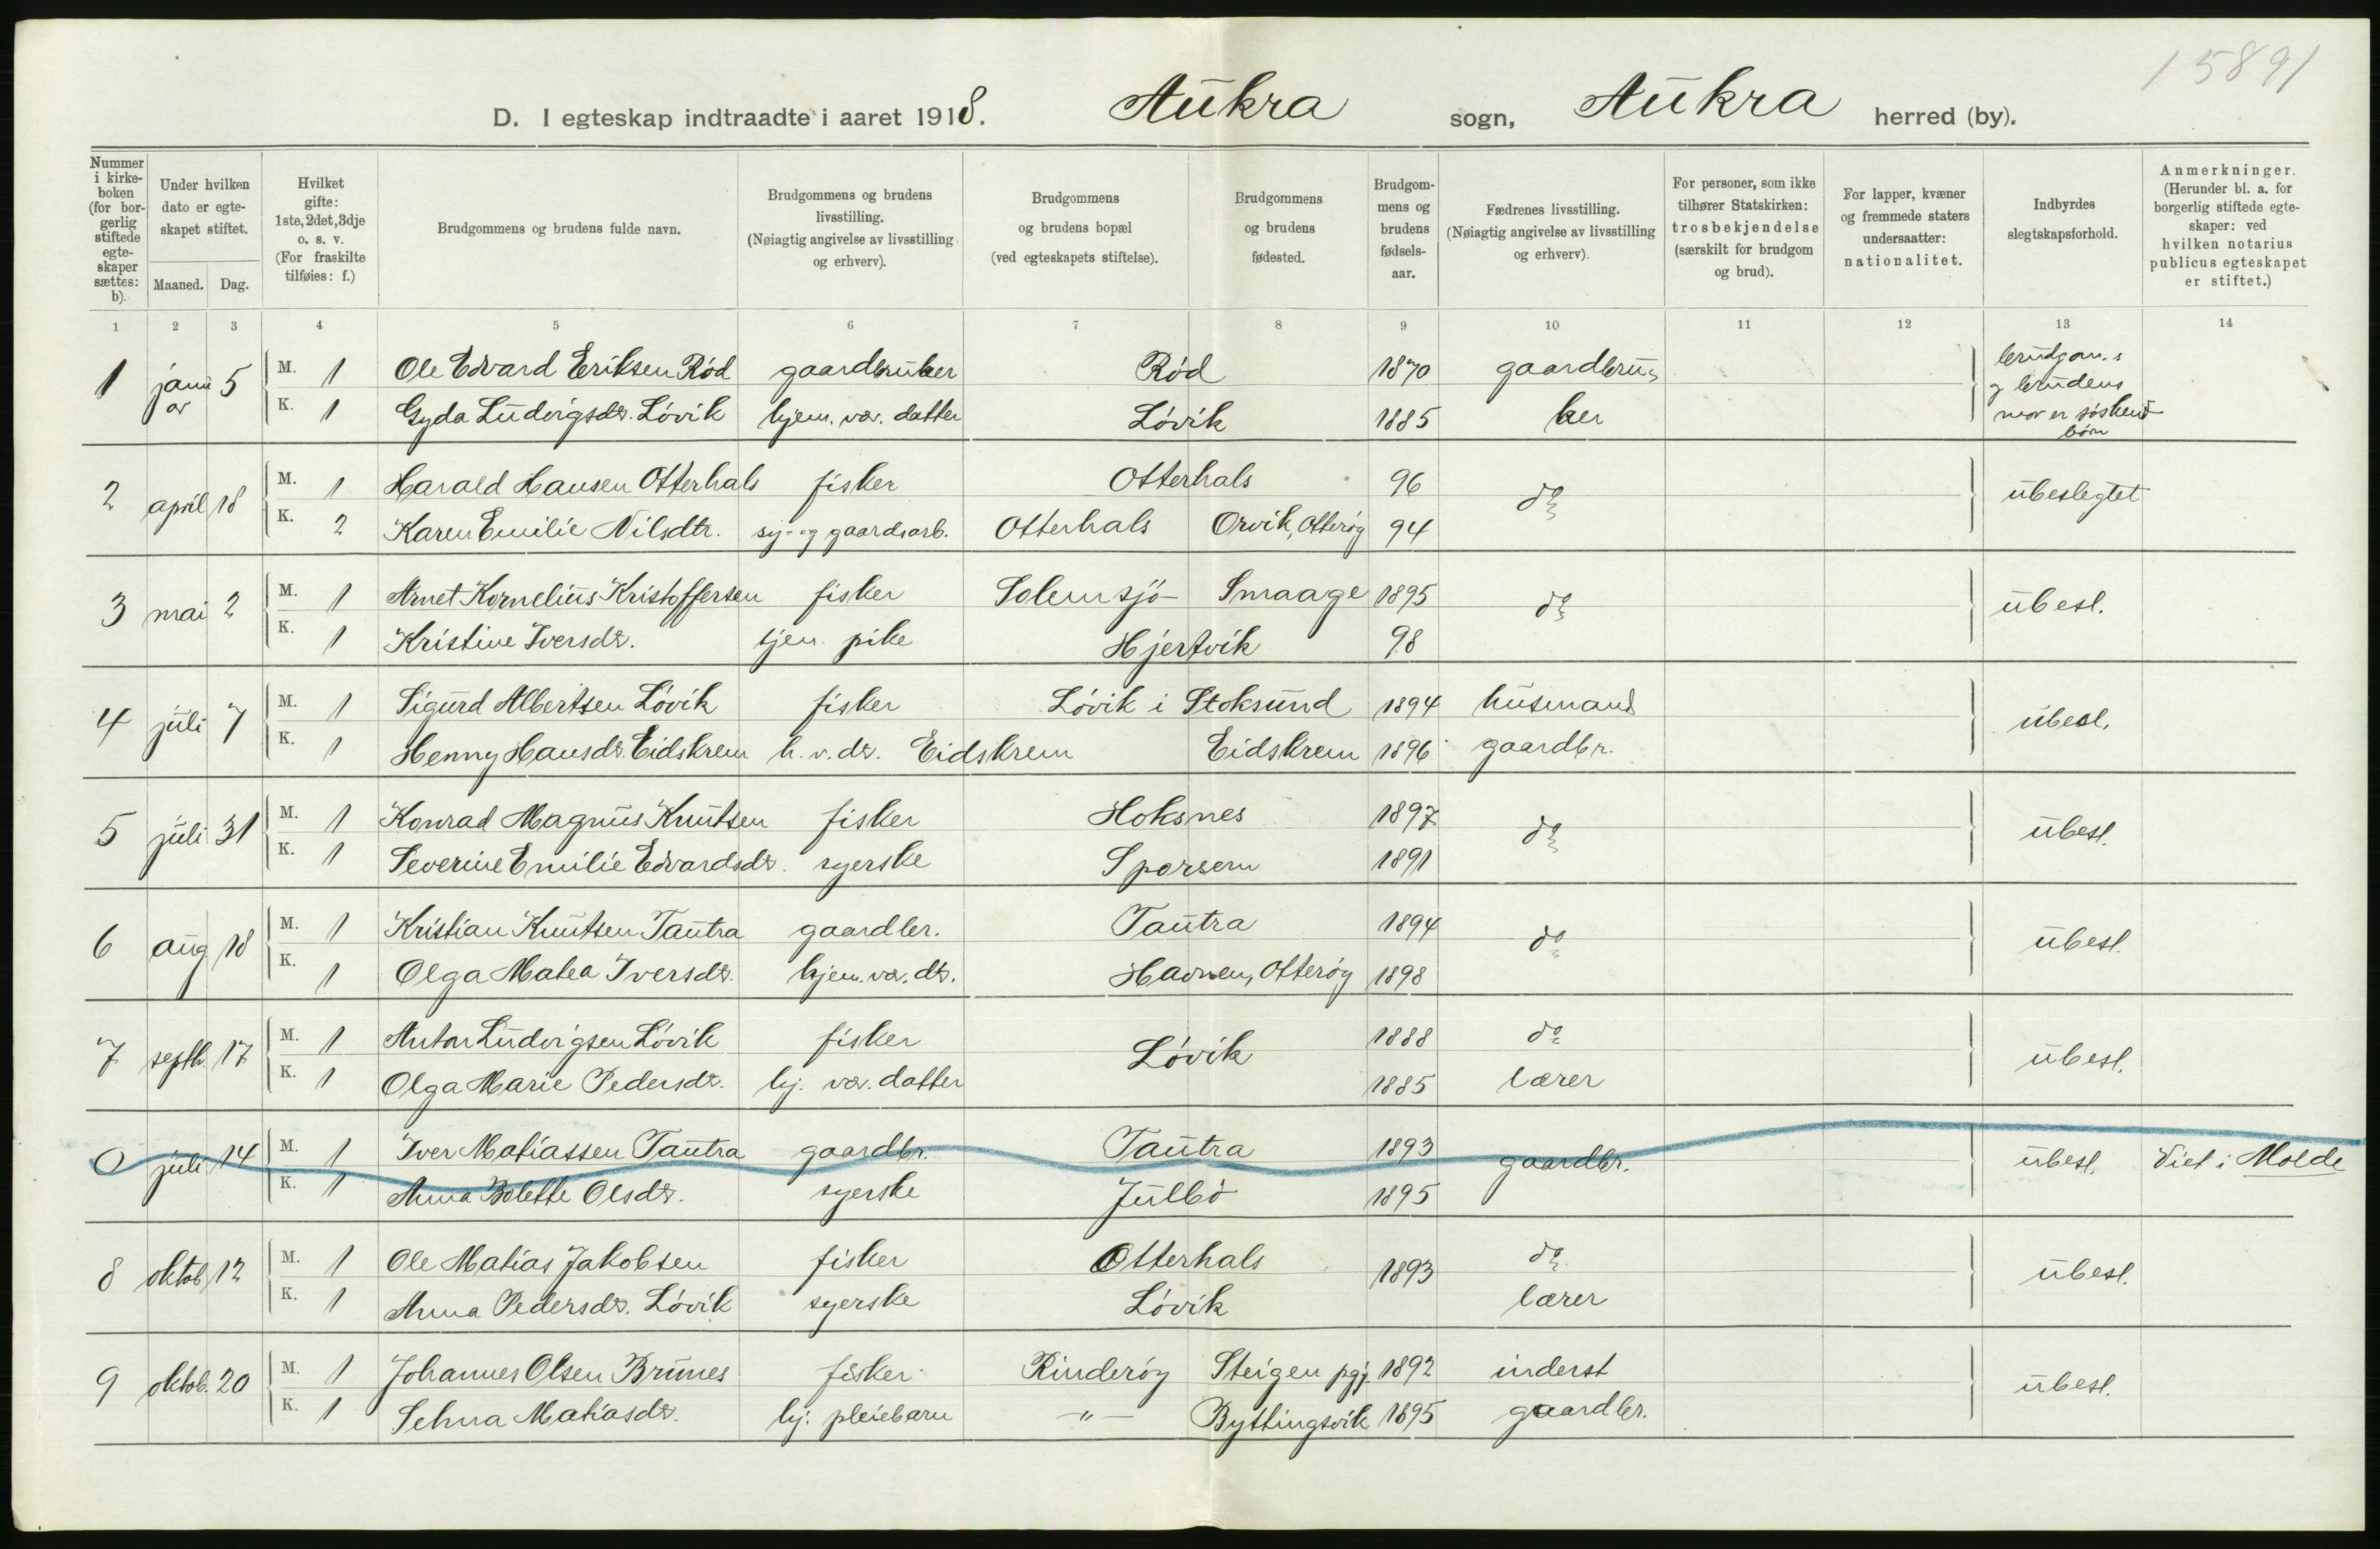 15891
D. I egteskap indtraadte i aaret 1918. Aukra sogn, Aukra herred (by).
Nummer i kirke-boken (for bor-gerlig stiftede egte-skaper sættes: b).
Under hvilken dato er egte-skapet stiftet.
Maaned. Dag.
Hvilket gifte: 1ste, 2det, 3dje o. s. v. (For fraskilte tilføies: f.)
Brudgommens og brudens fulde navn.
Brudgommens og brudens livsstilling. (Nøiagtig angivelse av livsstilling og erhverv).
Brudgommens og brudens bopæl (ved egteskapets stiftelse).
Brudgommens og brudens fødested.
Brudgom-mens og brudens fødsels-aar.
Fædrenes livsstilling. (Nøiagtig angivelse av livsstilling og erhverv).
For personer, som ikke tilhører Statskirken: trosbekjendelse (særskilt for brudgom og brud).
For lapper, kvæner og fremmede staters undersaatter: nationalitet.
Indbyrdes slegtskapsforhold.
Anmerkninger. (Herunder bl. a. for borgerlig stiftede egte-skaper: ved hvilken notarius publicus egteskapet er stiftet.)
1 2 3 4 5 6 7 8 9 10 11 12 13 14
1 januar 5 M. 1 Ole Edvard Eriksen Rød gaardbruker Rød 1870 gaardbru= brudgom.s og brudens
K. 1 Gyda Ludvigsdr. Løvik hjem. vær. datter Løvik 1885 ker mor er søskend børn
2 april 18 M. 1 Harald Hansen Otterhals fisker Otterhals 96 do ubeslegtet
K. 2 Karen Emilie Nilsdtr. sy- og gaardsarb. Otterhals Orvik, Otterøy 94
3 mai 2 M. 1 Arnet Kornelius Kristoffersen fisker Solemsjø Smaage 1895 do ubesl.
K. 1 Kristine Iversdr. tjen. pike Hjertvik 98
4 juli 7 M. 1 Sigurd Albertsen Løvik fisker Løvik i Stoksund 1894 husmand ubesl.
K. 1 Henny Hansdr. Eidskrem h. v. dr. Eidskrem Eidskrem 1896 gaardbr.
5 juli 31 M. 1 Konrad Magnus Knutsen fisker Hoksnes 1897 do ubesl.
K. 1 Severine Emilie Edvardsdr. syerske Sporsem 1891
6 aug 18 M. 1 Kristian Knutsen Tautra gaardbr. Tautra 1894 do ubesl.
K. 1 Olga Matea Iversdr. hjem. vær. dr. Havnen, Otterøy 1898
7 septb. 17 M. 1 Anton Ludvigsen Løvik fisker Løvik 1888 do ubesl.
K. 1 Olga Marie Pedersdr. hj. vær. datter 1885 lærer
0 juli 14 M. 1 Iver Matiassen Tautra gaardbr. Tautra 1893 gaardbr. ubesl. Viet i Molde
K. 1 Anna Bolette Olsdr. syerske Julbø 1895
8 oktob. 12 M. 1 Ole Matias Jakobsen fisker Otterhals 1893 do ubesl.
K. 1 Anna Pedersdr. Løvik syerske Løvik lærer
9 oktob. 20 M. 1 Johannes Olsen Brunes fisker Rinderøy Steigen pgj. 1892 inderst ubesl.
K. 1 Selma Matiasdr. hj. pleiebarn —"— Byttingsvik 1895 gaardbr.